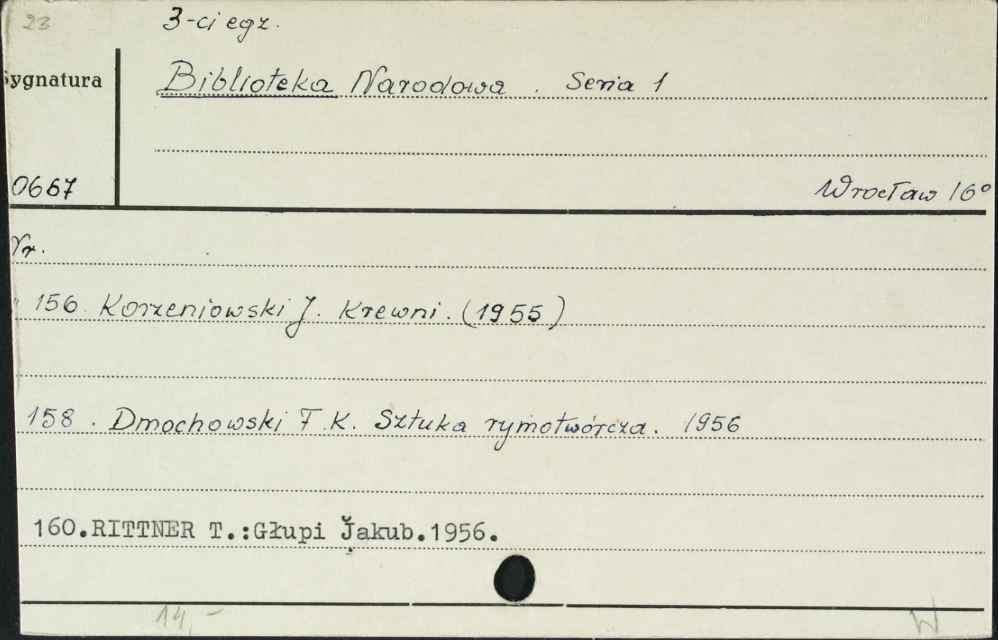 23
3-ci egz.
Sygnatura
Biblioteka Narodowa. Seria 1
0667
Wrocław 16°
Nr.
156 Korzeniowski J. Krewni. (1955)
158. Dmochowski F.K. Sztuka rymotwórcza. 1956
160.RITTNER T.:Głupi Jakub.1956.
14,-
W